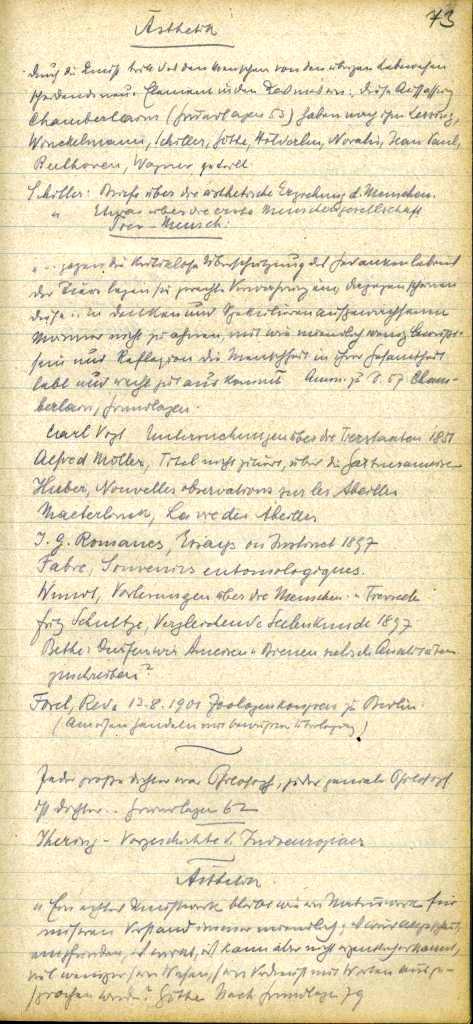 73
Ästhetik
Durch die Kunst tritt das den Menschen von den übrigen Lebewesen
scheidende neue Element in den Kosmos ein: diese Auffassung
Chamberlains (Grundlagen 53) haben nach ihm Lessing,
Winckelmann, Schiller, Göthe, Hölderlin, Novalis, Jean Paul,
Beethoven, Wagner geteilt.
Schiller: Briefe über die ästhetische Erziehung d. Menschen.
" Etwas über die erste Menschengesellschaft
Tier-Mensch:
"... gegen die kritiklose Überschätzung des Gedankenlebens
der Tiere legen sie gerechte Verwahrung ein, dagegen scheinen
diese .. in Denken und Spekulieren aufgewachsenen
Männer nicht zu ahnen, mit wie unendlich wenig Bewusst-
sein und Reflexion die Menschheit in ihrer Gesamtheit
lebt und recht gut auskommt Anm. zu S. 57. Cham-
berlain, Grundlagen.
Carl Vogt Untersuchungen über die Tierstaaten 1851
Alfred Möller, Titel nicht zitiert, über die
Huber, Nouvelles observations sur les Abeilles
Maeterlinck, La vie des Abeilles
J. G. Romanes, Essays on Instinct 1897
Fabre, Souvenirs entomologiques.
Wundt, Vorlesungen über die Menschen- u Tierseele
Fritz Schultze, Vergleichende Seelenkunde 1897
Bethe: Dürfen wir Ameisen u Bienen psychische Qualitäten
zuschreiben?
Forel, Rede 13.8.1901 Zoologenkongress zu Berlin.
(Ameisen handeln mit bewusster Überlegung)
Jeder große Dichter war Philosoph, jeder geniale Philosoph
ist Dichter.. Grundlagen 62
Ihering - Vorgeschichte d. Indoeuropäer
Ästhetik.
"Ein echtes Kunstwerk bleibt wie ein Naturwerk für
unseren Verstand immer unendlich; es wird angeschaut,
empfunden, es wirkt, es kann aber nicht eigentlich erkannt,
viel weniger sein Wesen, sein Verdienst mit Worten ausge-
sprochen werden." Göthe Nach Grundlagen 79